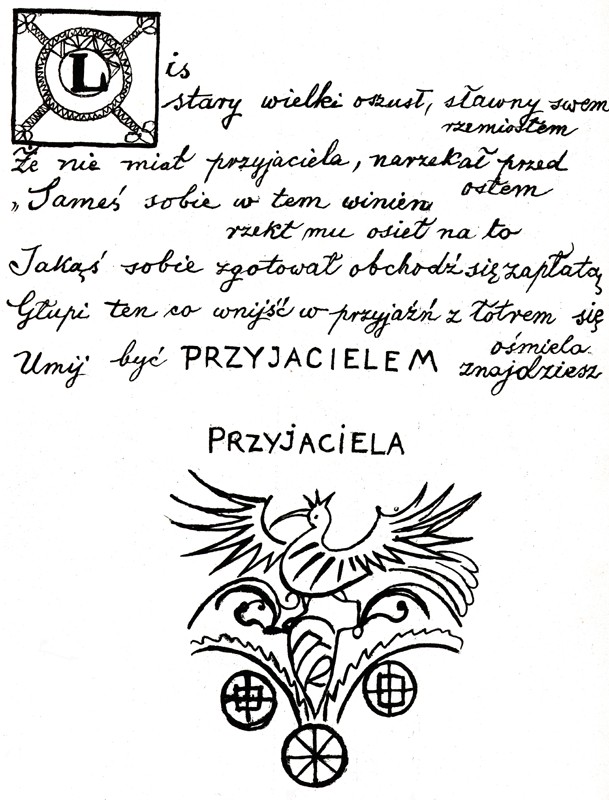 Lis
stary wielki oszust, sławny swem
rzemiosłem
Że nie miał przyjaciela, narzekał przed
osłem
„Sameś sobie w tem winien
rzekł mu osieł na to
Jakąś sobie zgotował obchodź się zapłatą
Głupi ten co wnijść w przyjaźń z łotrem się
ośmiela
Umij być PRZYJACIELEM znajdziesz
PRZYJACIELA